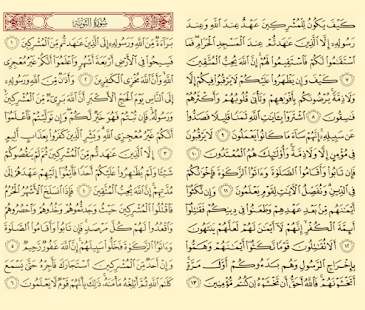 سُورَةُ التَّوْبَةِ
بَرَآءَةٌ مِّنَ ٱللَّهِ وَرَسُولِهِۦٓ إِلَى ٱلَّذِينَ عَـٰهَدتُّم مِّنَ ٱلْمُشْرِكِينَ ١
فَسِيحُوا۟ فِى ٱلْأَرْضِ أَرْبَعَةَ أَشْهُرٍ وَٱعْلَمُوٓا۟ أَنَّكُمْ غَيْرُ مُعْجِزِى
ٱللَّهِ وَأَنَّ ٱللَّهَ مُخْزِى ٱلْكَـٰفِرِينَ ٢ وَأَذَٰنٌ مِّنَ ٱللَّهِ وَرَسُولِهِۦٓ
إِلَى ٱلنَّاسِ يَوْمَ ٱلْحَجِّ ٱلْأَكْبَرِ أَنَّ ٱللَّهَ بَرِىٓءٌ مِّنَ ٱلْمُشْرِكِينَ
وَرَسُولُهُۥ فَإِن تُبْتُمْ فَهُوَ خَيْرٌ لَّكُمْ وَإِن تَوَلَّيْتُمْ فَٱعْلَمُوٓا۟
أَنَّكُمْ غَيْرُ مُعْجِزِى ٱللَّهِ وَبَشِّرِ ٱلَّذِينَ كَفَرُوا۟ بِعَذَابٍ أَلِيمٍ
٣ إِلَّا ٱلَّذِينَ عَـٰهَدتُّم مِّنَ ٱلْمُشْرِكِينَ ثُمَّ لَمْ يَنقُصُوكُمْ
شَيْـًٔا وَلَمْ يُظَـٰهِرُوا۟ عَلَيْكُمْ أَحَدًا فَأَتِمُّوٓا۟ إِلَيْهِمْ عَهْدَهُمْ إِلَىٰ
مُدَّتِهِمْ إِنَّ ٱللَّهَ يُحِبُّ ٱلْمُتَّقِينَ ٤ فَإِذَا ٱنسَلَخَ ٱلْأَشْهُرُ ٱلْحُرُمُ
فَٱقْتُلُوا۟ ٱلْمُشْرِكِينَ حَيْثُ وَجَدتُّمُوهُمْ وَخُذُوهُمْ وَٱحْصُرُوهُمْ
وَٱقْعُدُوا۟ لَهُمْ كُلَّ مَرْصَدٍ فَإِن تَابُوا۟ وَأَقَامُوا۟ ٱلصَّلَوٰةَ
وَءَاتَوُا۟ ٱلزَّكَوٰةَ فَخَلُّوا۟ سَبِيلَهُمْ إِنَّ ٱللَّهَ غَفُورٌ رَّحِيمٌ ٥
وَإِنْ أَحَدٌ مِّنَ ٱلْمُشْرِكِينَ ٱسْتَجَارَكَ فَأَجِرْهُ حَتَّىٰ يَسْمَعَ
كَلَـٰمَ ٱللَّهِ ثُمَّ أَبْلِغْهُ مَأْمَنَهُۥ ذَٰلِكَ بِأَنَّهُمْ قَوْمٌ لَّا يَعْلَمُونَ ٦
كَيْفَ يَكُونُ لِلْمُشْرِكِينَ عَهْدٌ عِندَ ٱللَّهِ وَعِندَ
رَسُولِهِۦٓ إِلَّا ٱلَّذِينَ عَـٰهَدتُّمْ عِندَ ٱلْمَسْجِدِ ٱلْحَرَامِ فَمَا
ٱسْتَقَـٰمُوا۟ لَكُمْ فَٱسْتَقِيمُوا۟ لَهُمْ إِنَّ ٱللَّهَ يُحِبُّ ٱلْمُتَّقِينَ
٧ كَيْفَ وَإِن يَظْهَرُوا۟ عَلَيْكُمْ لَا يَرْقُبُوا۟ فِيكُمْ إِلًّا
وَلَا ذِمَّةً يُرْضُونَكُم بِأَفْوَٰهِهِمْ وَتَأْبَىٰ قُلُوبُهُمْ وَأَكْثَرُهُمْ
فَـٰسِقُونَ ٨ ٱشْتَرَوْا۟ بِـَٔايَـٰتِ ٱللَّهِ ثَمَنًا قَلِيلًا فَصَدُّوا۟
عَن سَبِيلِهِۦٓ إِنَّهُمْ سَآءَ مَا كَانُوا۟ يَعْمَلُونَ ٩ لَا يَرْقُبُونَ
فِى مُؤْمِنٍ إِلًّا وَلَا ذِمَّةً وَأُو۟لَـٰٓئِكَ هُمُ ٱلْمُعْتَدُونَ ١٠
فَإِن تَابُوا۟ وَأَقَامُوا۟ ٱلصَّلَوٰةَ وَءَاتَوُا۟ ٱلزَّكَوٰةَ فَإِخْوَٰنُكُمْ
فِى ٱلدِّينِ وَنُفَصِّلُ ٱلْـَٔايَـٰتِ لِقَوْمٍ يَعْلَمُونَ ١١ وَإِن نَّكَثُوٓا۟
أَيْمَـٰنَهُم مِّنۢ بَعْدِ عَهْدِهِمْ وَطَعَنُوا۟ فِى دِينِكُمْ فَقَـٰتِلُوٓا۟
أَئِمَّةَ ٱلْكُفْرِ إِنَّهُمْ لَآ أَيْمَـٰنَ لَهُمْ لَعَلَّهُمْ يَنتَهُونَ
١٢ أَلَا تُقَـٰتِلُونَ قَوْمًا نَّكَثُوٓا۟ أَيْمَـٰنَهُمْ وَهَمُّوا۟
بِإِخْرَاجِ ٱلرَّسُولِ وَهُم بَدَءُوكُمْ أَوَّلَ مَرَّةٍ
أَتَخْشَوْنَهُمْ فَٱللَّهُ أَحَقُّ أَن تَخْشَوْهُ إِن كُنتُم مُّؤْمِنِينَ ١٣